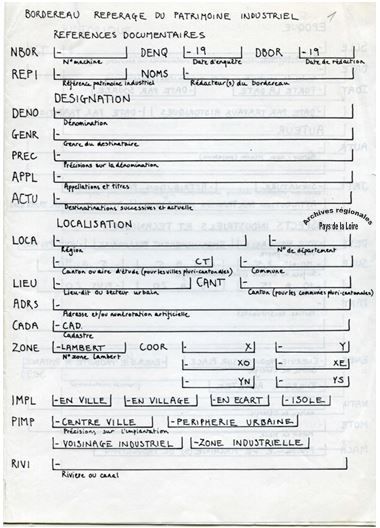 BORDEREAU REPERAGE DU PATRIMOINE INDUSTRIEL 1
REFERENCES DOCUMENTAIRES
NBOR - DENQ - 19 DBOR - 19
N° machine Date d'enquête Date de rédaction
REPI - NOMS -
Référence patrimoine industriel Rédacteur(s) du bordereau
DESIGNATION
DENO -
Dénomination
GENR -
Genre du destinataire
PREC -
Précisions sur la dénomination
APPL -
Appellations et titres
ACTU -
Destinations successives et actuelle
Archives régionales
Pays de la Loire
LOCALISATION
LOCA - -
Région N° de département
- CT -
Canton ou aire d'étude (pour les villes pluri-cantonales) Commune
LIEU - CANT -
Lieu-dit ou secteur urbain Canton (pour les communes pluri-cantonales)
ADRS -
Adresse et/ou numérotation artificielle
CADA - CAD.
Cadastre
ZONE - LAMBERT COOR - X - Y
N° zone Lambert
- XO - XE
- YN - YS
IMPL - EN VILLE - EN VILLAGE - EN ECART - ISOLE
PIMP - CENTRE VILLE - PERIPHERIE URBAINE
Précisions sur l'implantation
- VOISINAGE INDUSTRIEL - ZONE INDUSTRIELLE
RIVI -
Rivière ou canal